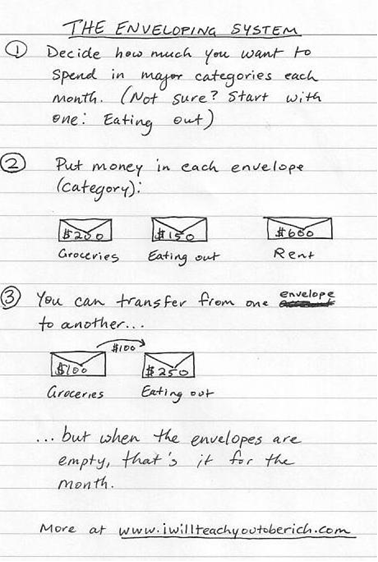 THE ENVELOPING SYSTEM
① Decide how much you want to
spend in major categories each
month. (Not sure? Start with
one: Eating out)
② Put money in each envelope
(category):
$200 $150 $600
Groceries Eating out Rent
③ You can transfer from one envelope
to another...
$100
$100 $250
Groceries Eating out
...but when the envelopes are
empty, that's it for the
month.
More at www.iwillteachyoutoberich.com